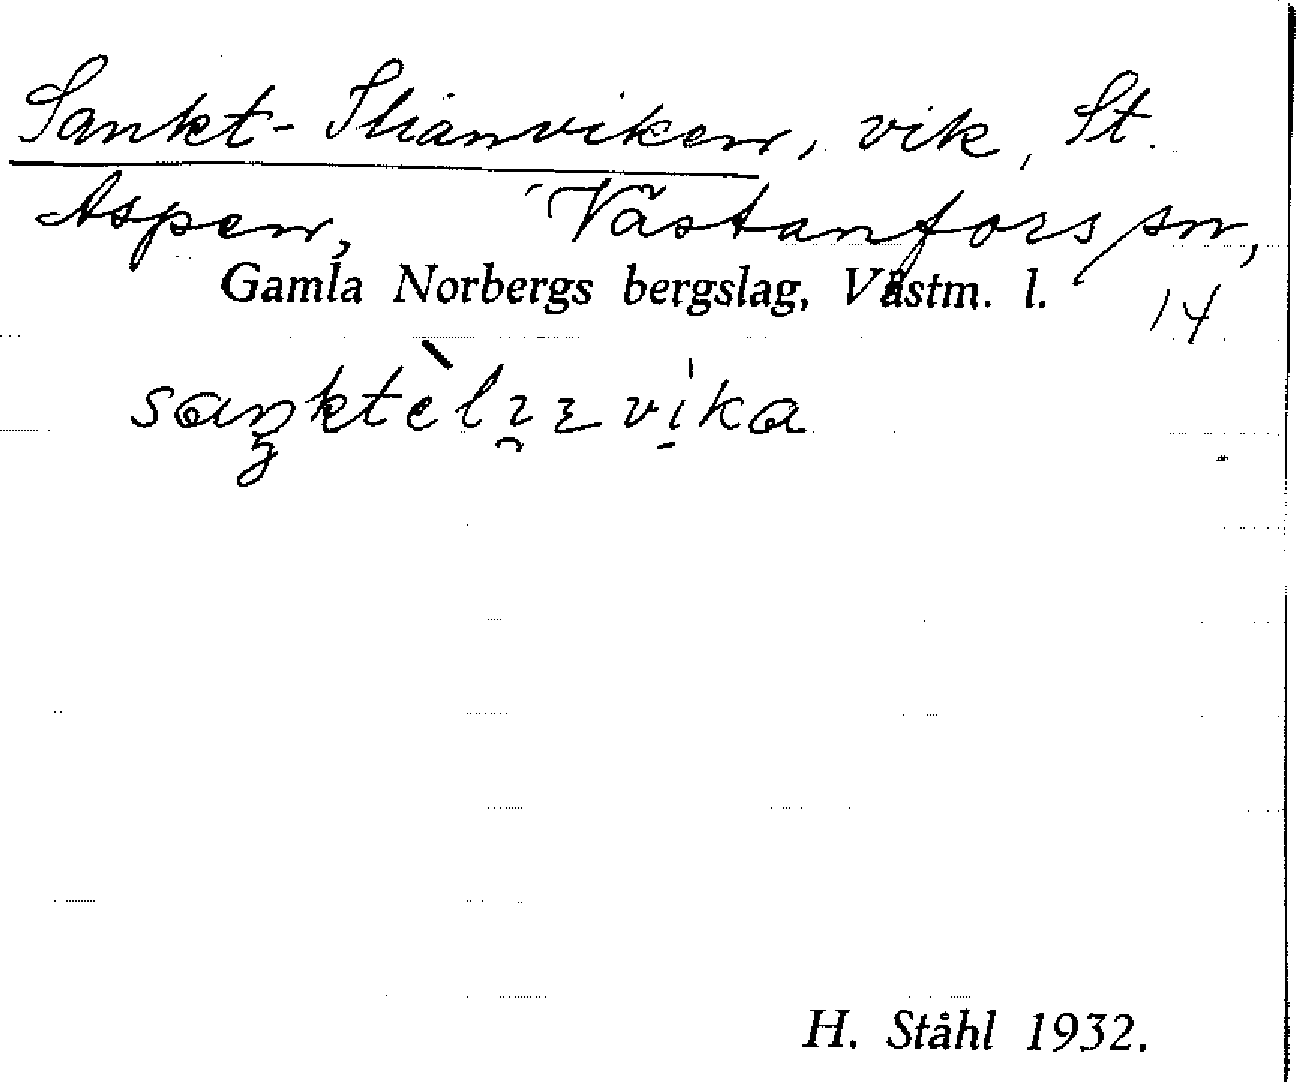 Sankt-Elianviken, vik, St.
Aspen, Västanfors sn,
Gamla Norbergs bergslag, Västm. l.
14
H. Ståhl 1932.